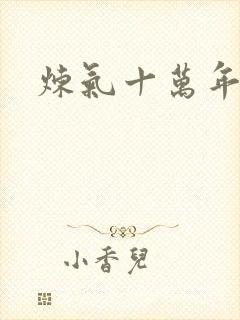 煉氣十萬年
小香兒